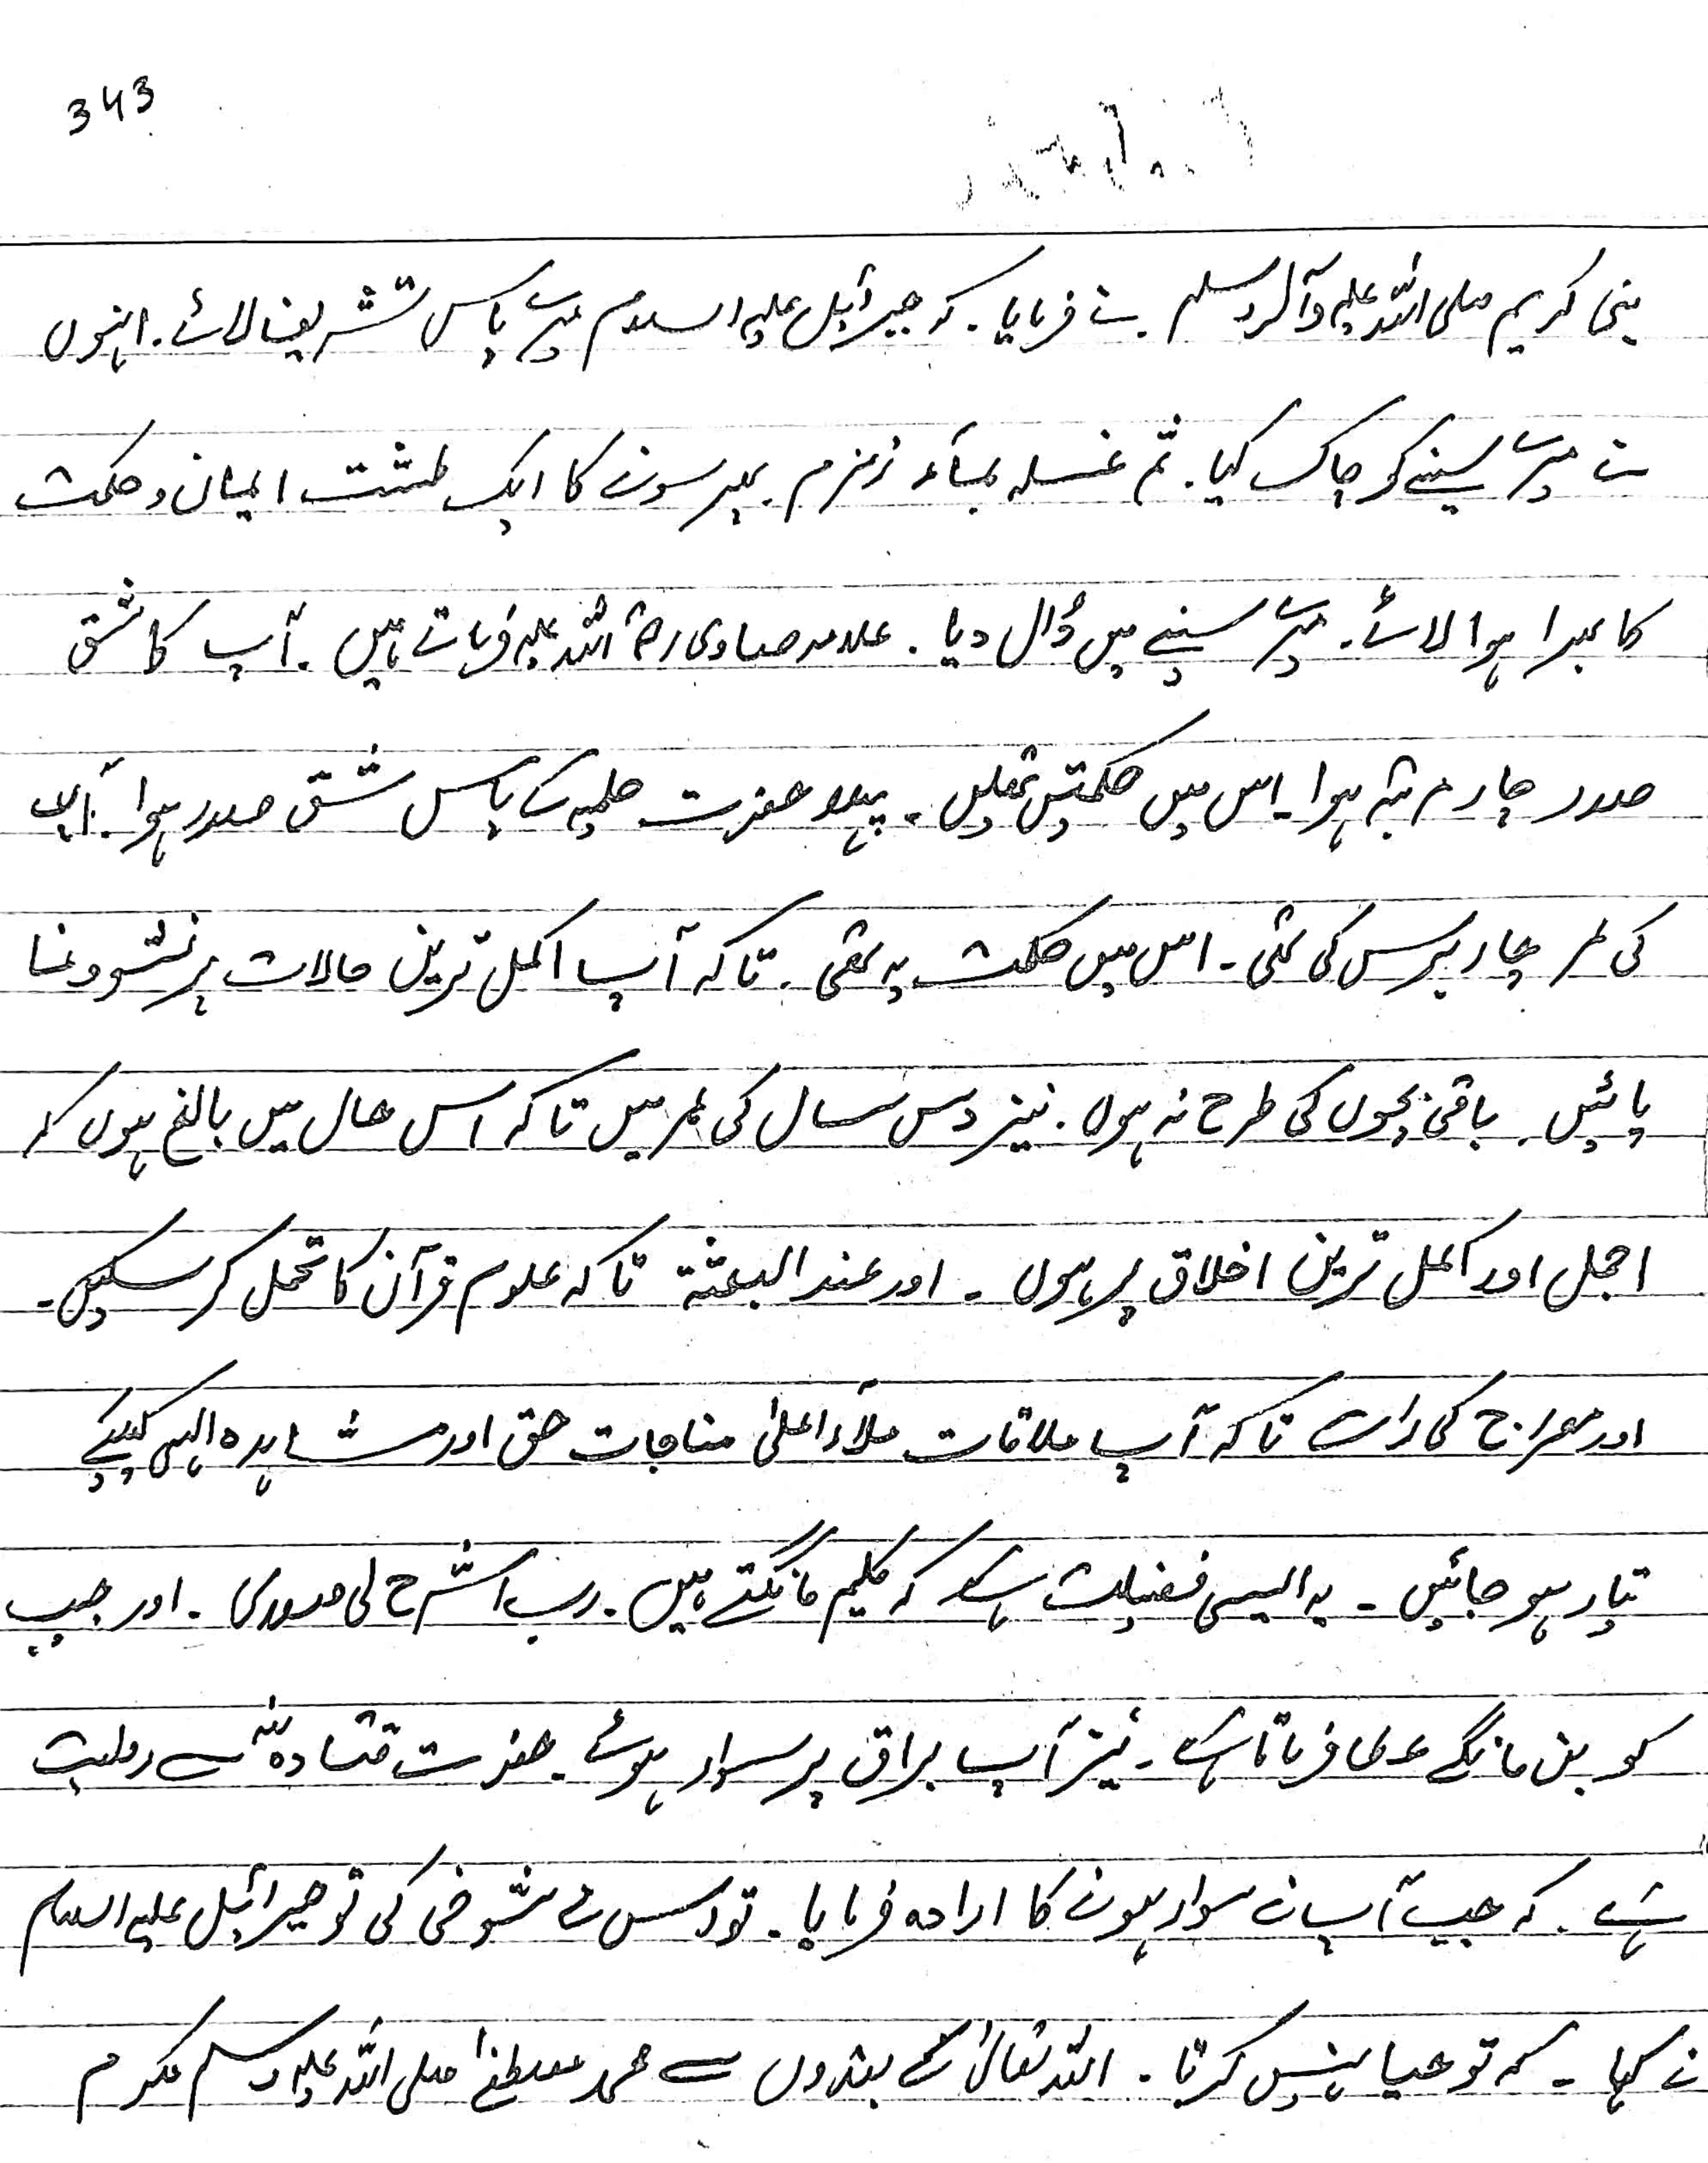 343
نبی کریم صلی اللہ علیہ وآلہ وسلم نے فرمایا۔ کہ جبرائیل علیہ السلام میرے پاس تشریف لائے۔ انہوں
نے میرے سینے کو چاک کیا۔ ثم غسلہ بماء زمزم۔ پھر سونے کا ایک طشت ایمان و حکمت
کا بھرا ہوا لائے۔ میرے سینے میں ڈال دیا۔ علامہ صاوی رحمۃ اللہ علیہ فرماتے ہیں۔ آپ کا شق
صدر چار مرتبہ ہوا۔ اس میں حکمتیں تھیں۔ پہلا حضرت حلیمہ کے پاس شق صدر ہوا۔ آپ
کی عمر چار برس کی تھی۔ اس میں حکمت یہ تھی۔ تاکہ آپ اکمل ترین حالات پر نشوونما
پائیں۔ باقی بچوں کی طرح نہ ہوں۔ نیز دس سال کی عمر میں تاکہ اس حال میں بالغ ہوں کہ
اجمل اور اکمل ترین اخلاق پر ہوں۔ اور عند البعثة تاکہ علوم قرآن کا تحمل کر سکیں۔
اور معراج کی رات تاکہ آپ ملاقات ملاء اعلیٰ مناجات حق اور مشاہدہ الہی کیلئے
تیار ہو جائیں۔ یہ ایسی فضیلت ہے کہ کلیم مانگتے ہیں۔ رب اشرح لی صدری۔ اور حبیب
کو بن مانگے عطا فرماتا ہے۔ نیز آپ براق پر سوار ہوئے۔ حضرت قتادہؓ سے روایت
ہے۔ کہ جب آپ نے سوار ہونے کا ارادہ فرمایا۔ تو اس نے شوخی کی تو جبرائیل علیہ السلام
نے کہا۔ کہ تو حیا نہیں کرتا۔ اللہ تعالیٰ کے بندوں سے محمد مصطفیٰ صلی اللہ علیہ وسلم مکرم